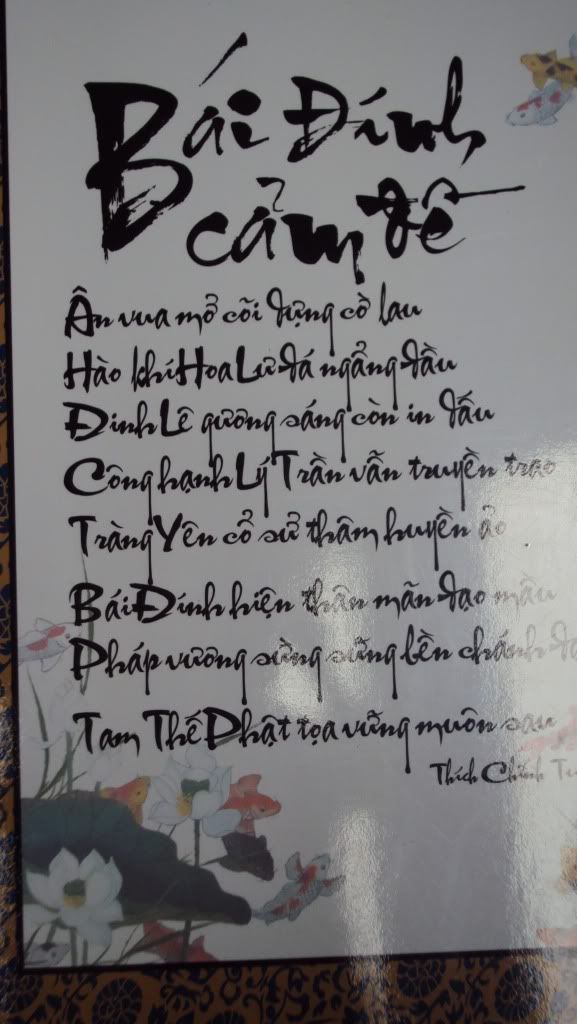 Bái Đính
cảm đề
Ân vua mở cõi dựng cờ lau
Hào khí Hoa Lư đá ngẩng đầu
Đinh Lê gương sáng còn in dấu
Công hạnh Lý Trần vẫn truyền trao
Tràng Yên cổ sử thâm huyền ảo
Bái Đính hiện thân mãn đạo mầu
Pháp vương sừng sững bền chánh
Tam Thế Phật tọa vững muôn sau
Thích Chính